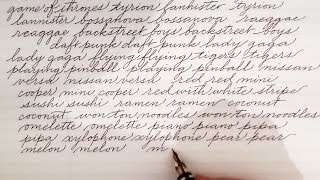 game of thrones tyrion lannister tyrion
lannister bossanova bossanova raeggae
reaggae backstreet boys backstreet boys
daft punk daft punk lady gaga
lady gaga flying flying tigers tigers
playing pinball playing pinball nissan
versa nissan versa red red mini
cooper mini cooper red with white stripe
sushi sushi ramen ramen coconut
coconut won ton noodles won ton noodles
omelette omelette piano piano pipa
pipa xylophone xylophone pear pear
melon melon m